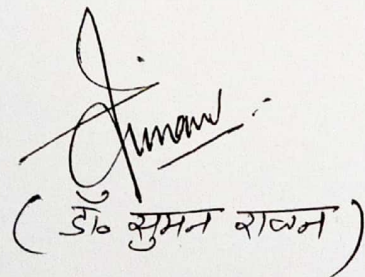 Suman
( डॉ॰ सुमन रावन )